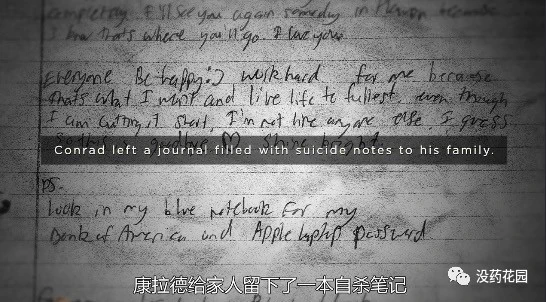 completely. I'll see you again someday in Heaven because
I know that's where you'll go. I love you.
Everyone Be happy :) work hard for me because
that's what I want and live life to fullest, even though
I am cutting it short, I'm not like anyone else. I guess
goodbye ♡ shine bright
Conrad left a journal filled with suicide notes to his family.
PS.
Look in my blue notebook for my
Bank of America and Apple laptop password
康拉德给家人留下了一本自杀笔记
没药花园